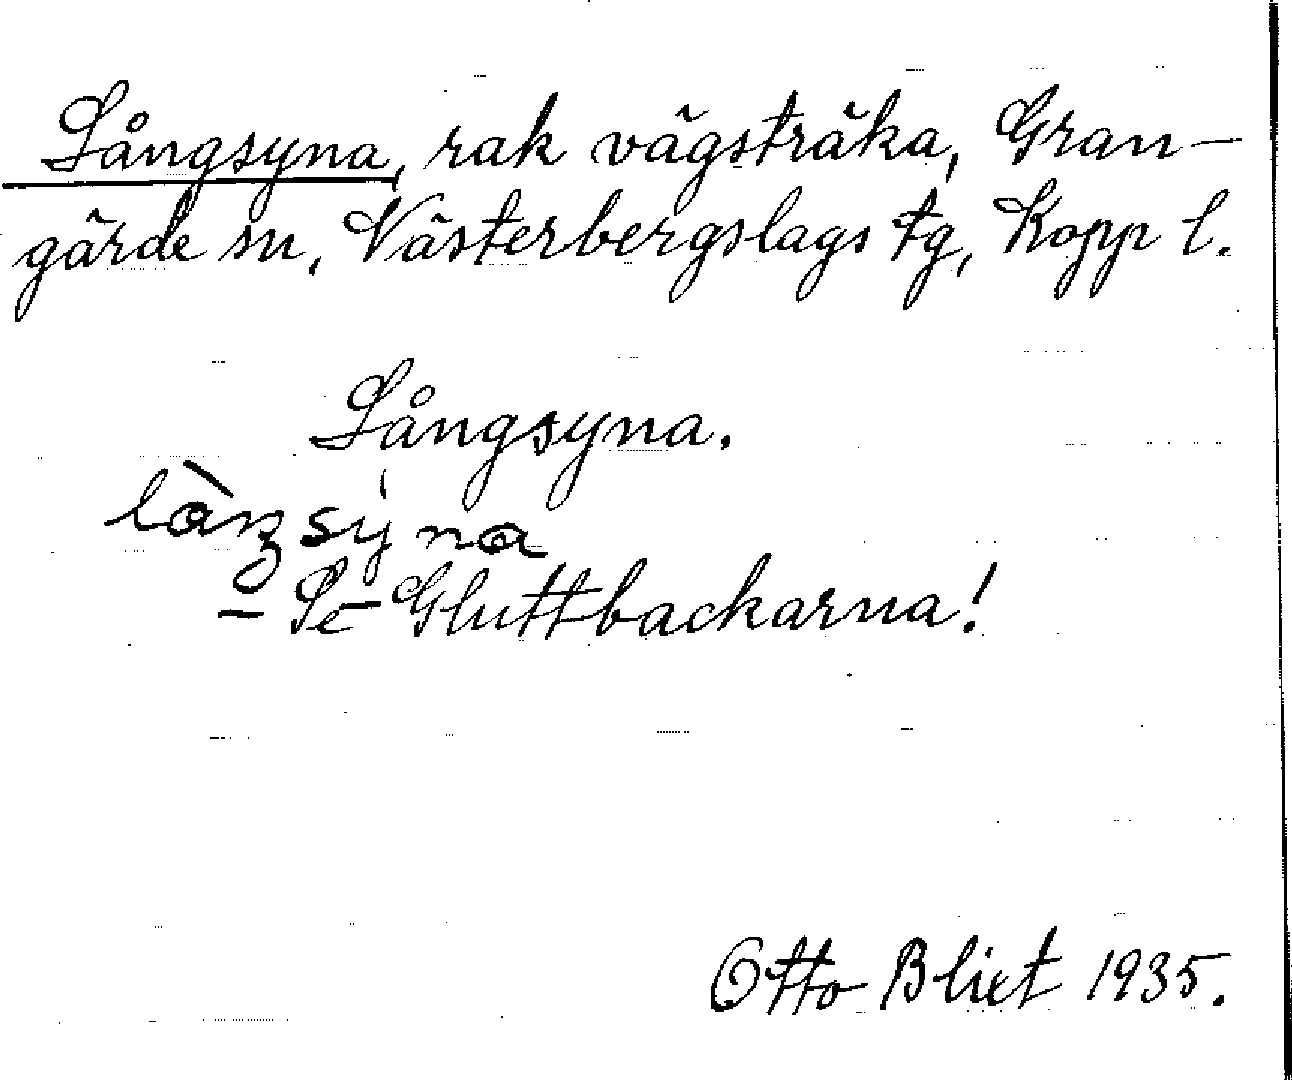 Långsyna, rak vägsträka, Gran-
gärde sn, Västerbergslags tg, Kopp l.
Långsyna.
làŋsyna
- Se Gluttbackarna!
Otto Blixt 1935.